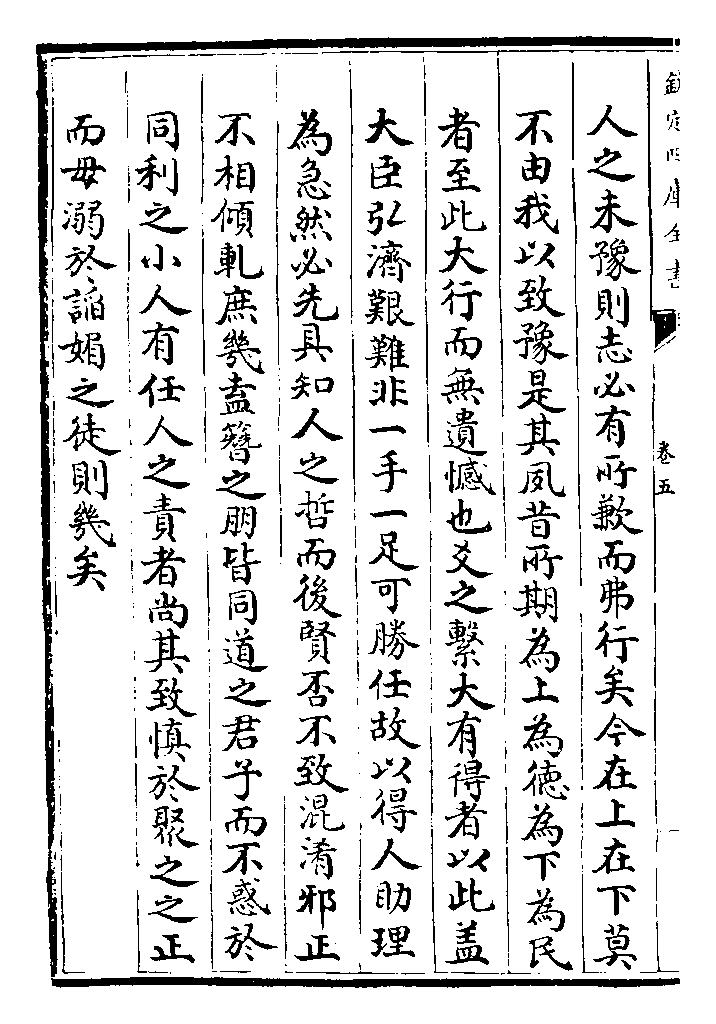 欽定四庫全書
卷五
人之未豫則志必有所歉而弗行矣今在上在下莫
不由我以致豫是其夙昔所期為上為德為下為民
者至此大行而無遺憾也爻之繫大有得者以此盖
大臣弘濟艱難非一手一足可勝任故以得人助理
為急然必先具知人之哲而後賢否不致混淆邪正
不相傾軋庶幾盍簪之朋皆同道之君子而不惑於
同利之小人有任人之責者尚其致慎於聚之之正
而毋溺於謟媚之徒則幾矣